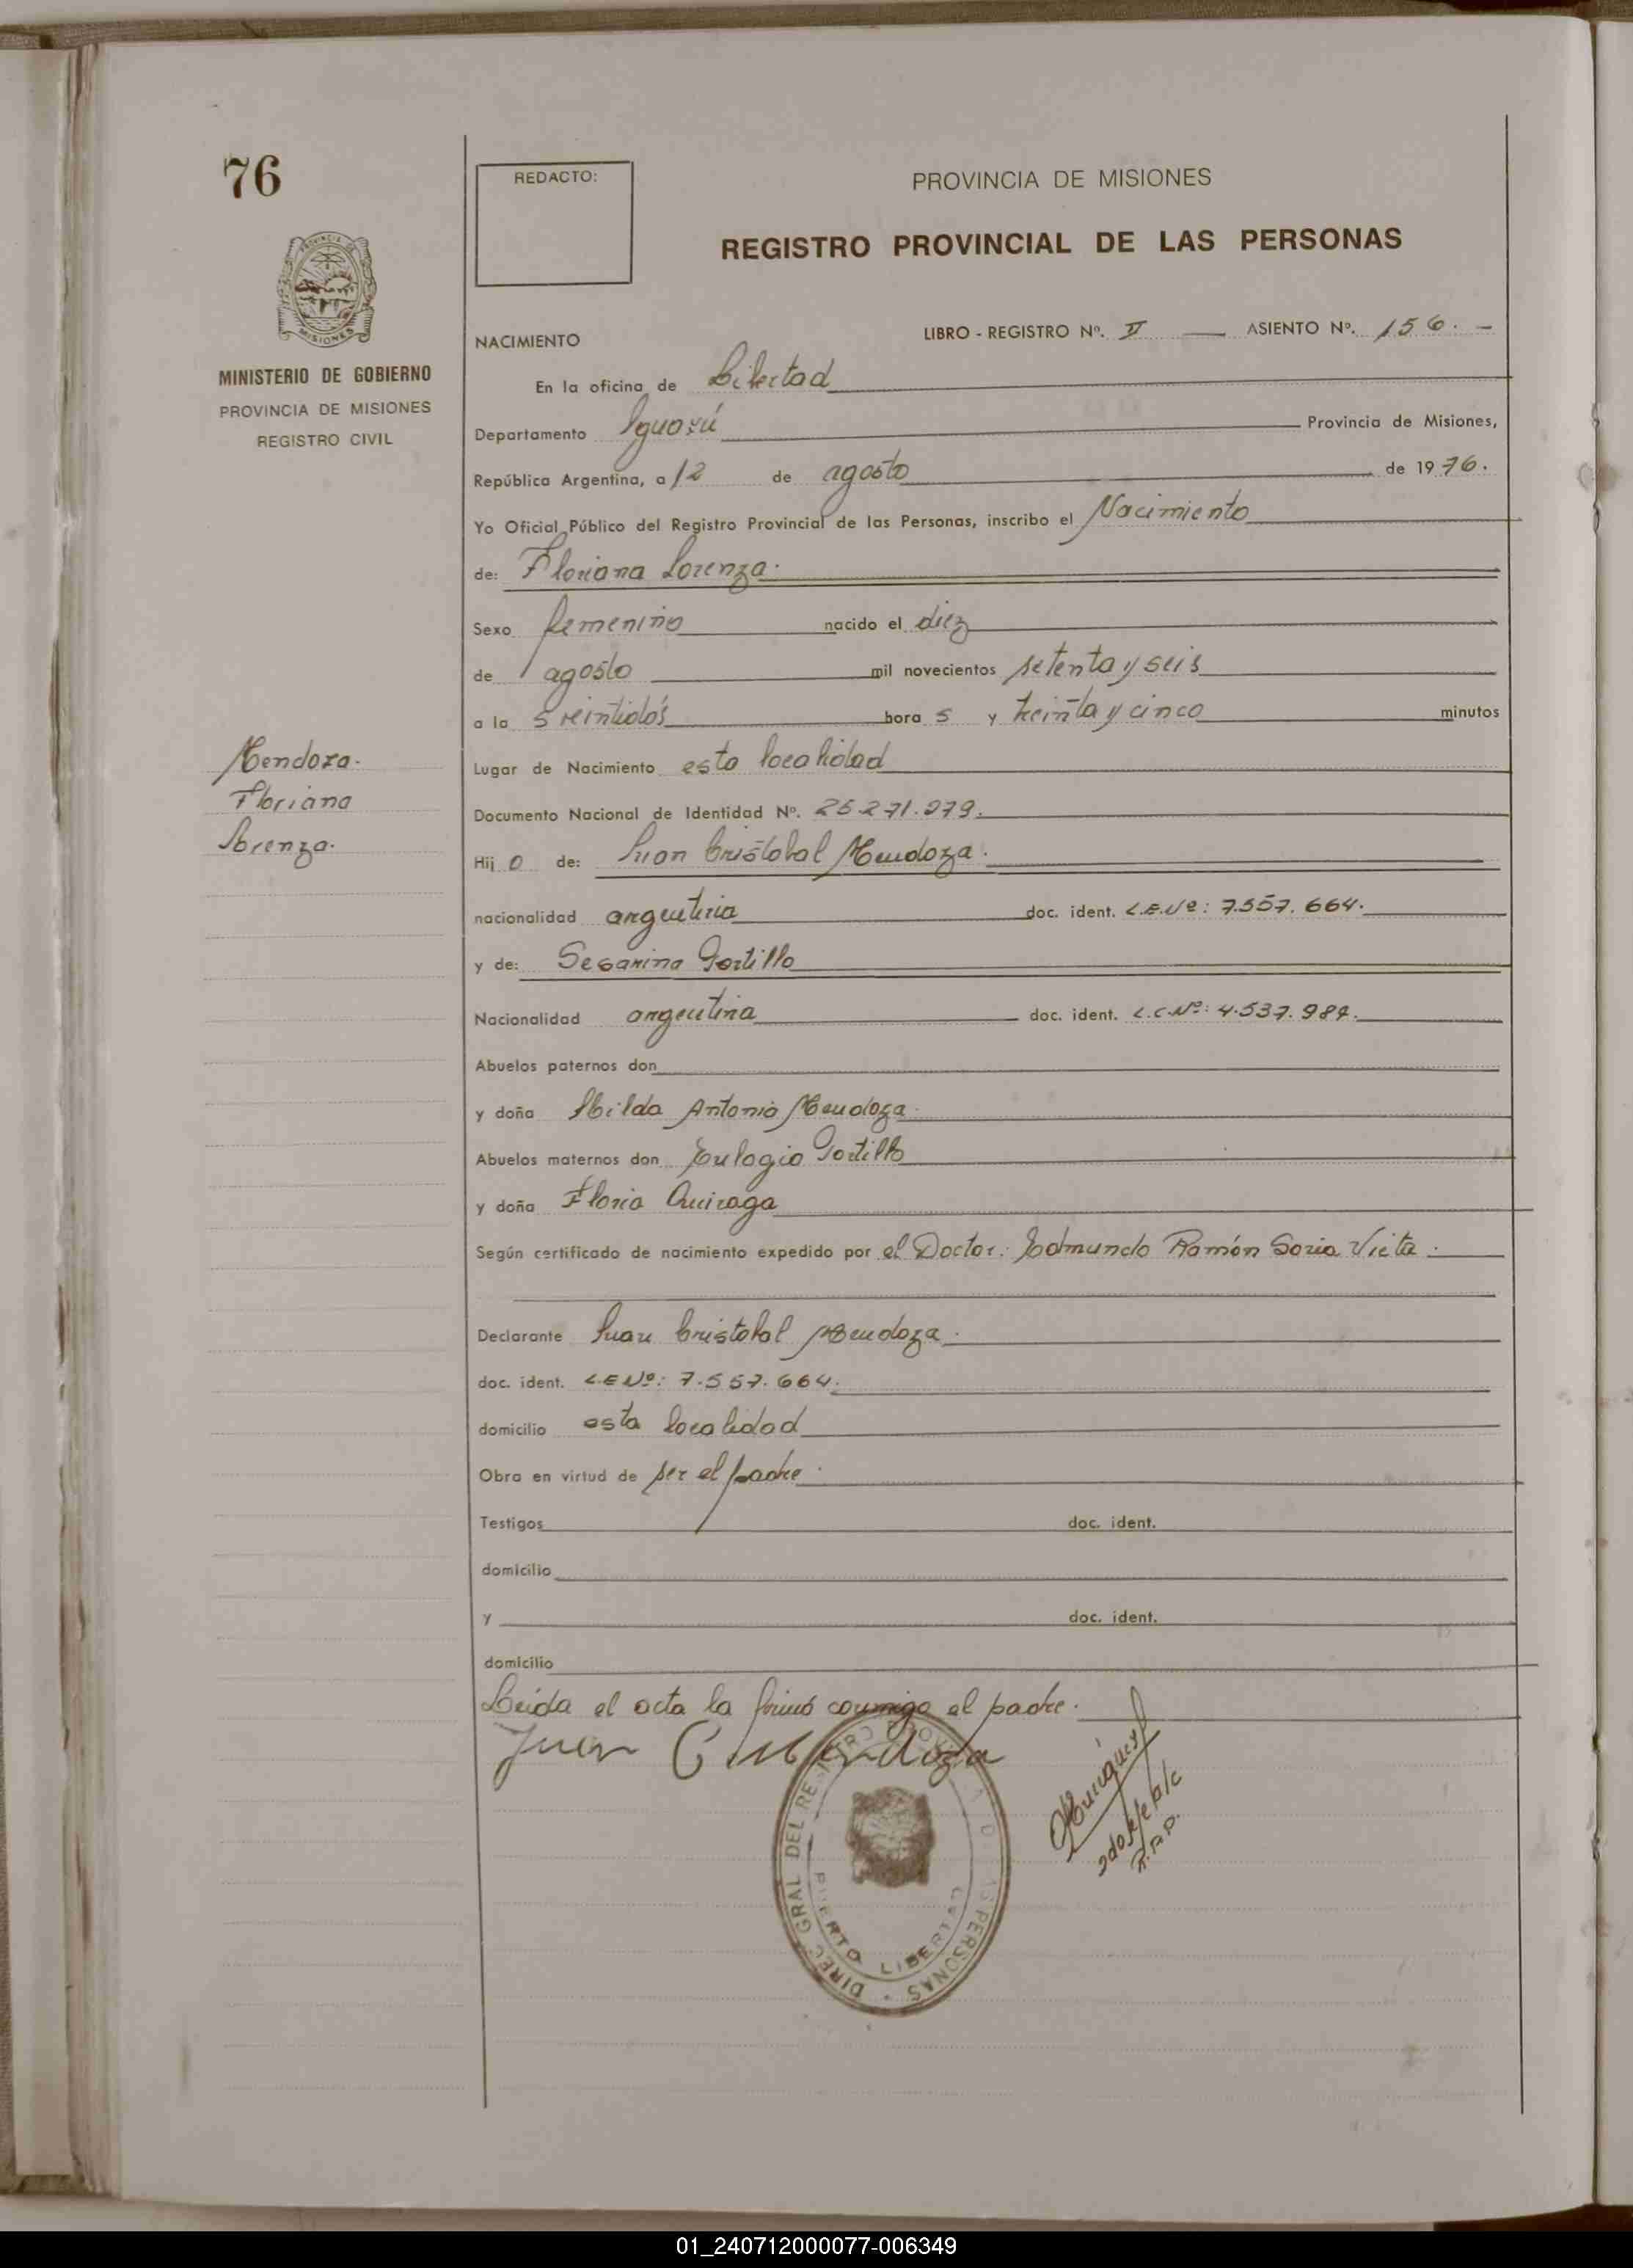 76
REDACTO:
PROVINCIA DE MISIONES
REGISTRO PROVINCIAL DE LAS PERSONAS
MINISTERIO DE GOBIERNO
PROVINCIA DE MISIONES
REGISTRO CIVIL
NACIMIENTO
LIBRO - REGISTRO Nº. II ASIENTO Nº. 156. -
En la oficina de Libertad
Departamento Iguazú Provincia de Misiones,
República Argentina, a 12 de agosto de 1976.
Yo Oficial Público del Registro Provincial de las Personas, inscribo el Nacimiento
de: Floriana Lorenza.
Sexo femenino nacido el diez
de agosto mil novecientos setenta y seis
a la s veintidós hora s y treinta y cinco minutos
Mendoza.
Floriana
Lorenza.
Lugar de Nacimiento esta localidad
Documento Nacional de Identidad Nº. 25.271.279.
Hij o de: Juan Cristobal Mendoza.
nacionalidad argentina doc. ident. L.E.Nº: 7.557.664.
y de: Portillo
Nacionalidad argentina doc. ident. L.C.Nº: 4.537.984.
Abuelos paternos don
y doña Hilda Antonia Mendoza.
Abuelos maternos don Eulogio Portillo
y doña Floria Quiroga
Según certificado de nacimiento expedido por el Doctor: Edmundo Ramón Soria Vieta.
Declarante Juan Cristobal Mendoza.
doc. ident. L.E Nº: 7.557.664.
domicilio esta localidad
Obra en virtud de ser el padre.
Testigos doc. ident.
domicilio
y doc. ident.
domicilio
Leida el acta la firmó conmigo el padre.
Juan C Mendoza
R.P.P.
DIREC. GRAL DEL REGISTRO PROVINCIAL DE LAS PERSONAS
PUERTO LIBERTAD
01_240712000077-006349